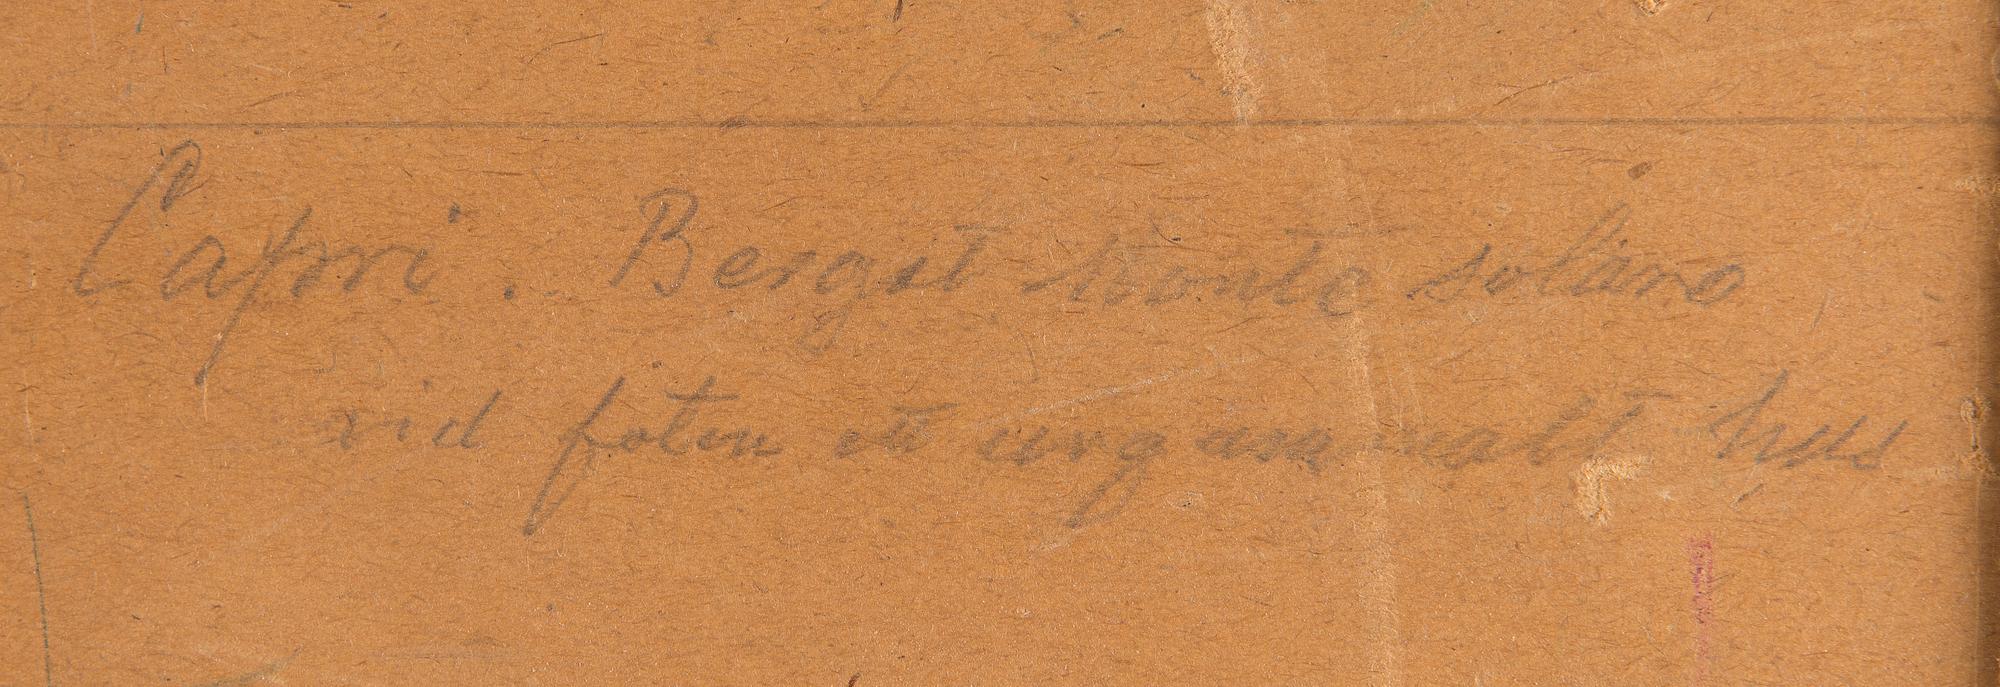 Capri. Berget monte solaro
vid foten ett urgammalt hus